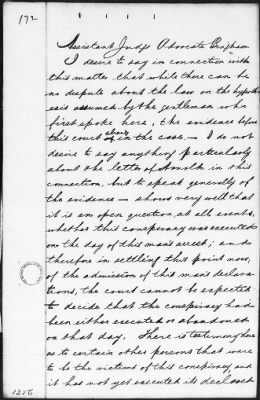 172
Assistant Judge Advocate Bingham.
I desire to say in connection with
this matter that while there can be
no dispute about the law on the hypoth
esis assumed by the gentleman who
first spoke here, the evidence before
this court shows in the case — I do not
desire to say anything particularly
about the letter of Arnold in this
connection, but to speak generally of
the evidence — shows very well that
it is an open question, at all events,
whether this conspiracy was executed
on the day of this man's arrest; and
therefore in settling this point now,
of the admission of this man's declara
tions, the court cannot be expected
to decide that the conspiracy had
been either executed or abandoned
on that day. There is testimony here
as to certain other persons that were
to be the victims of this conspiracy, and
it has not yet executed its declared
1256